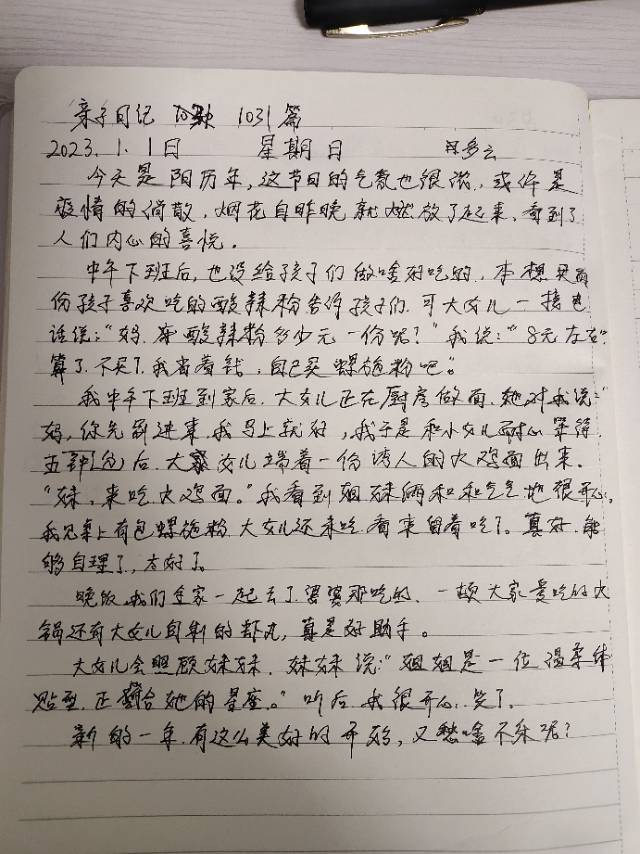 亲子日记 1031篇
2023.1.1日 星期日 多云
今天是阳历年，这节日的气氛也很浓，或许是
疫情的消散，烟花自昨晚就燃放了起来，看到了
人们内心的喜悦。
中午下班后，也没给孩子们做啥好吃的，本想买两
份孩子喜欢吃的酸辣粉告诉孩子们，可大女儿一接电
话说：“妈，麻酸辣粉多少元一份呢？”我说：“8元左右”
算了，不买了，我省着钱，自己买螺蛳粉吧。”
我中午下班到家后，大女儿正在厨房做面，她对我说：“
妈，你先到进来，我马上就好，我于是和小女儿耐心等待，
五分钟后，大女儿端着一份诱人的火鸡面出来，
“妹，来吃火鸡面。”我看到姐妹俩和和气气地很开心，
我见桌上有包螺蛳粉大女儿还未吃，看来留着吃了。真好，能
够自理了，太好了。
晚饭我们全家一起去了婆婆那吃的，一顿大家爱吃的火
锅还有大女儿自制的虾丸，真是好助手。
大女儿会照顾妹妹，妹妹说：“姐姐是一位温柔体
贴型，正符合她的星座。”听后，我很开心，笑了。
新的一年，有这么美好的开始，又愁啥不乐呢？